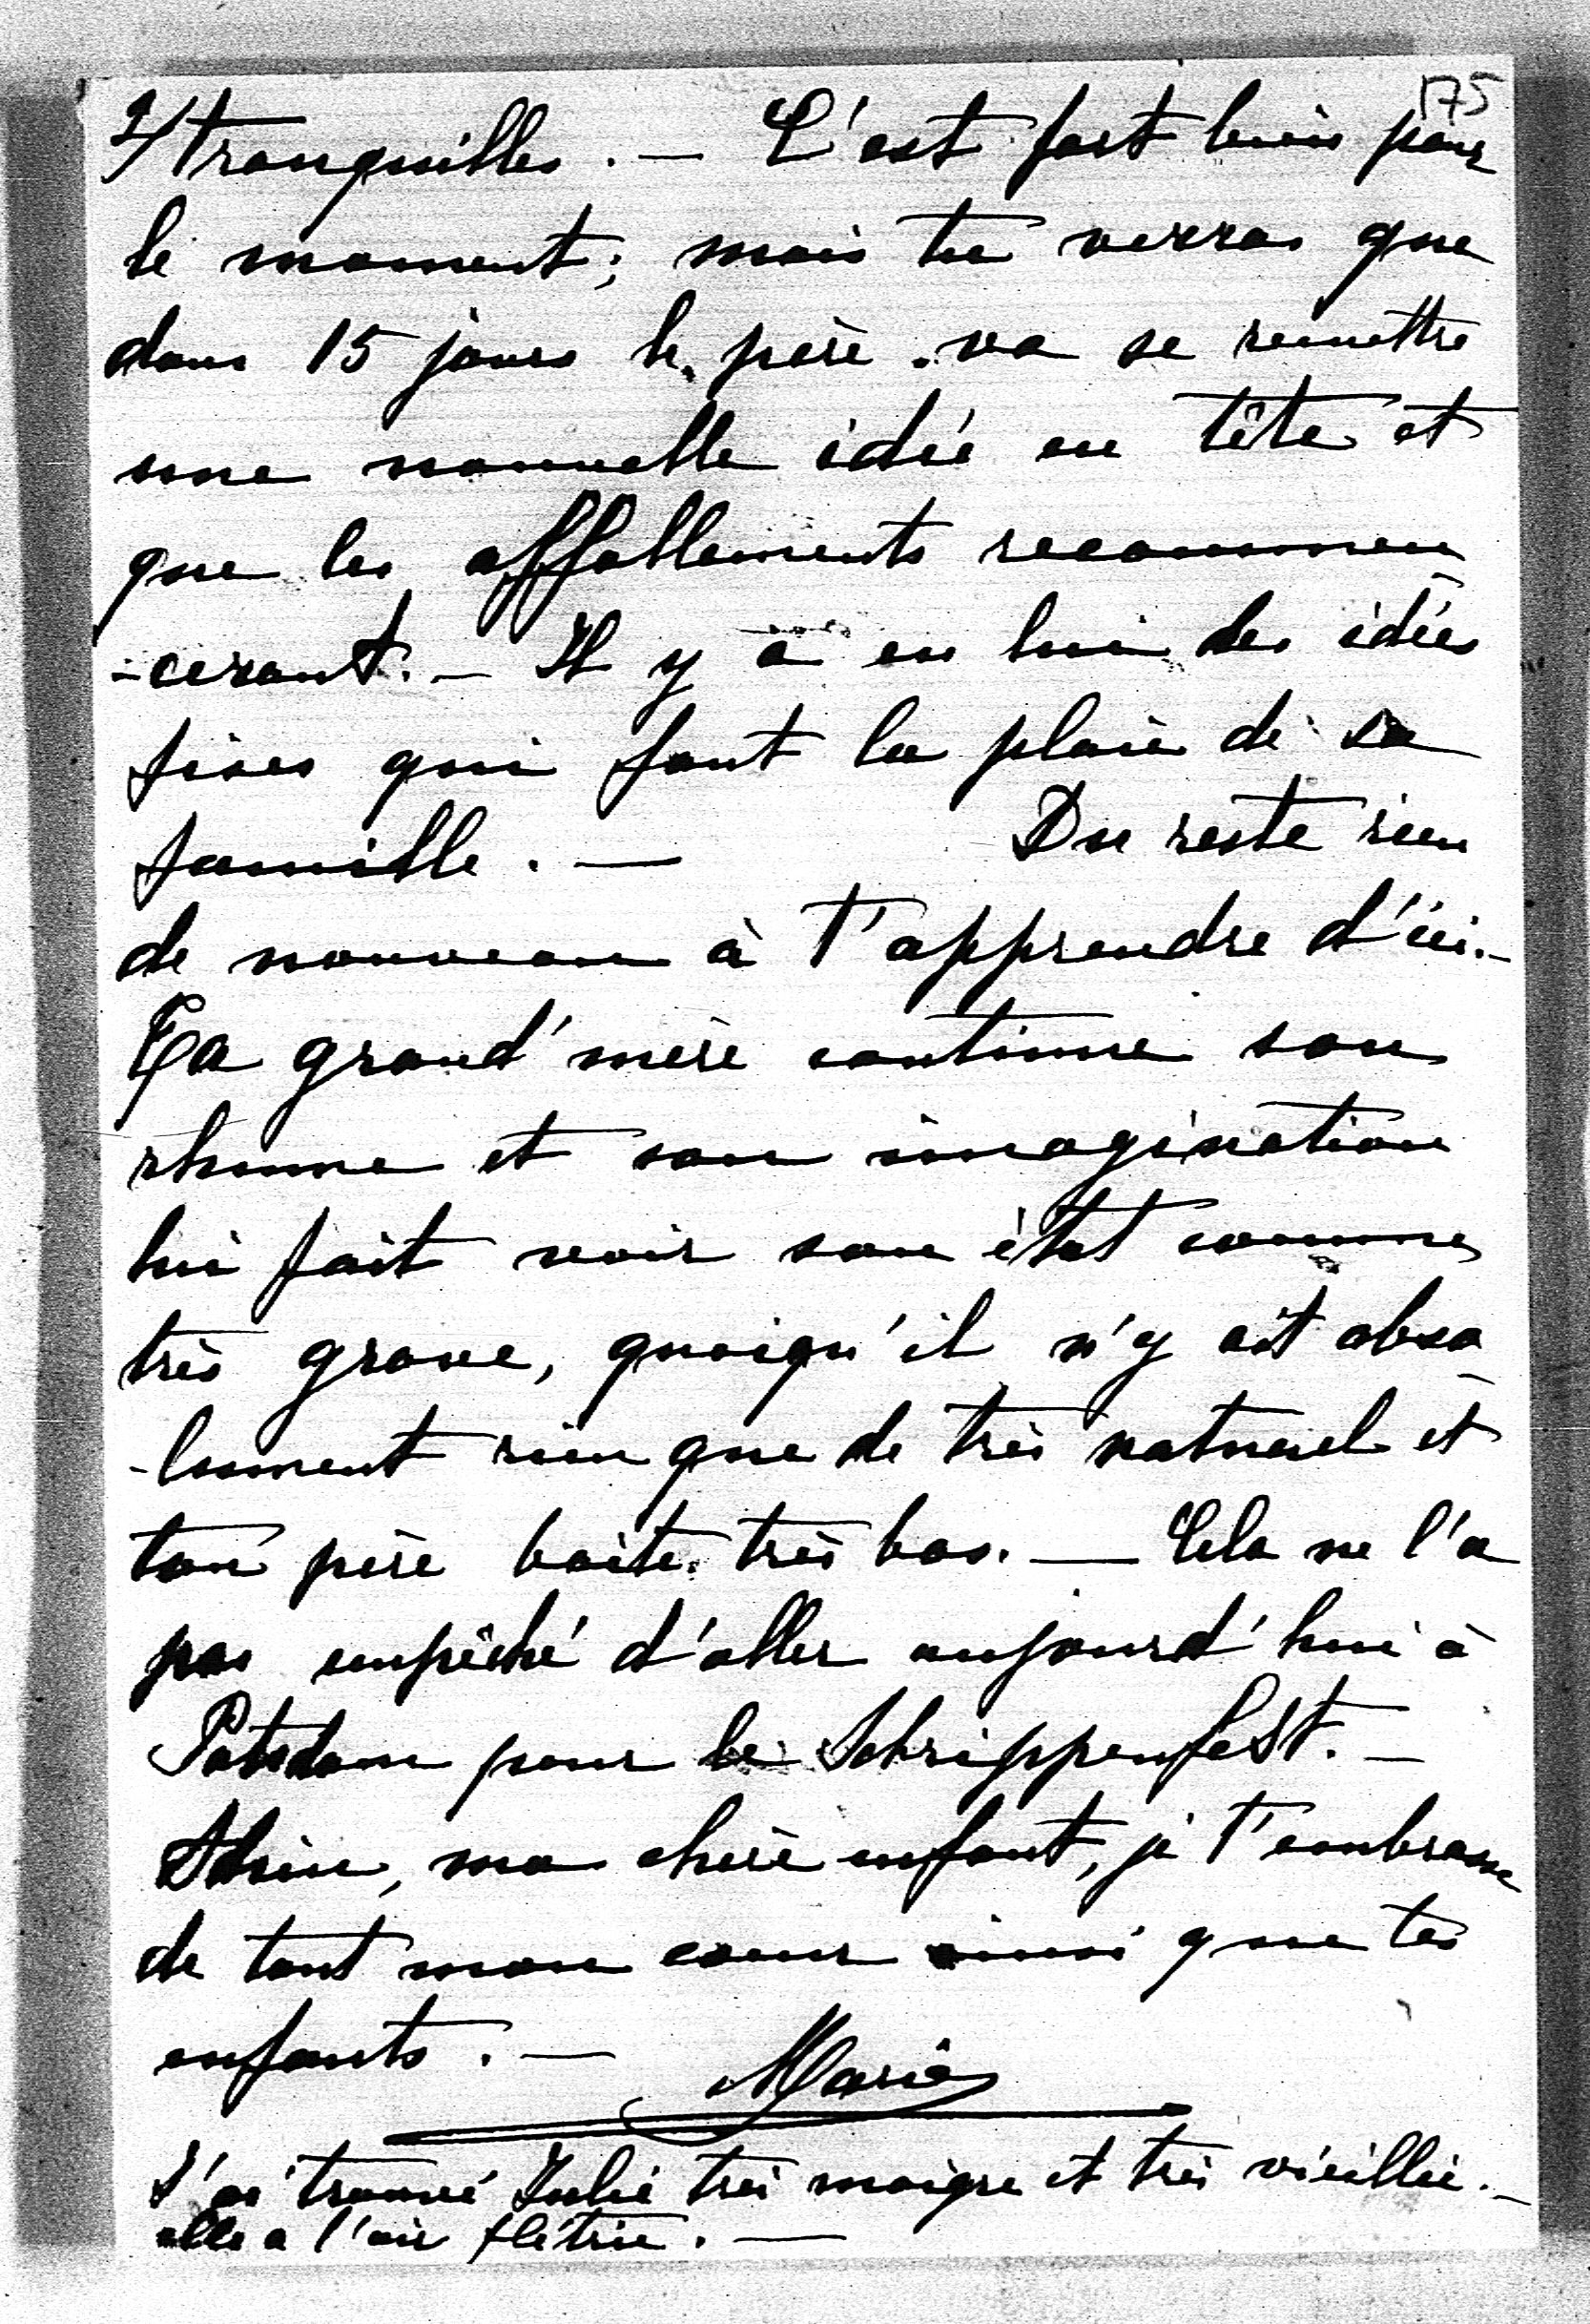 175
2/ tranquilles. — C'est fort bien pour
le moment; mais tu verras que
dans 15 jours le père va se remettre
une nouvelle idée en tête et
que les affollements recommen
-ceront. — Il y a en lui des idées
fixes qui font la plaie de sa
famille. — Du reste rien
de nouveau à t'apprendre d'ici. —
Ta grand'mère continue son
rhume et son imagination
lui fait voir son état comme
très grave, quoiqu'il n'y ait abso
-lument rien que de très naturel et
ton père boite très bas. — Cela ne l'a
pas empêché d'aller aujourd'hui à
Potsdam pour le Schrippenfest. —
Adieu, ma chère enfant, je t'embrasse
de tout mon coeur ainsi que tes
enfants. — Marie
J'ai trouvé Julie très maigre et très vieillie. —
elle a l'air flétrie. —